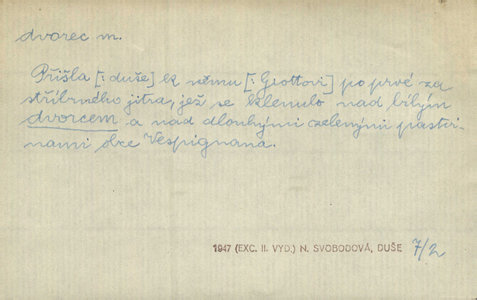 dvorec m.
Přišla [: duše] k němu [: Giottovi] po prvé za
stříbrného jitra, jež se klenulo nad bílým
dvorcem a nad dlouhými zelenými pastvi-
nami obce Vespignana.
1947 (EXC. II. VYD.) N. SVOBODOVÁ, DUŠE 7/2